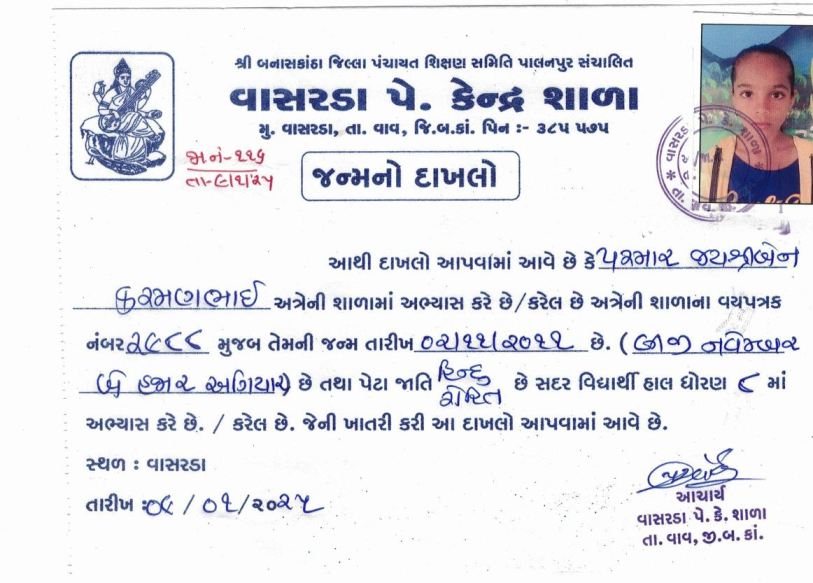 શ્રી બનાસકાંઠા જિલ્લા પંચાયત શિક્ષણ સમિતિ પાલનપુર સંચાલિત
વાસરડા પે. કેન્દ્ર શાળા
મુ. વાસરડા, તા. વાવ, જિ.બ.કાં. પિન :- ૩૮૫ ૫૭૫
જા નં-૨૨૬
તા-૯/૧/૨૫
જન્મનો દાખલો
આથી દાખલો આપવામાં આવે છે કે પરમાર જયશ્રીબેન
કરમણભાઈ અત્રેની શાળામાં અભ્યાસ કરે છે/કરેલ છે અત્રેની શાળાના વયપત્રક
નંબર ૨૯૮૮ મુજબ તેમની જન્મ તારીખ ૦૨/૧૧/૨૦૧૧ છે. (બીજી નવેમ્બર
બે હજાર અગિયાર) છે તથા પેટા જાતિ હિન્દુ રોહિત છે સદર વિદ્યાર્થી હાલ ધોરણ ૮ માં
અભ્યાસ કરે છે. / કરેલ છે. જેની ખાતરી કરી આ દાખલો આપવામાં આવે છે.
સ્થળ : વાસરડા
તારીખ :૦૯ / ૦૧ / ૨૦૨૫
આચાર્ય
વાસરડા પે. કે. શાળા
તા. વાવ, જી.બ. કાં.